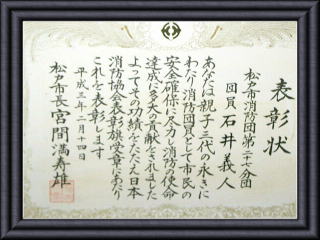 表彰状
松戸市消防団第二十七分団
団員 石井義人
あなたは親子三代の永きに
わたり消防団員として市民の
安全確保に尽力し消防の使命
達成に多大の貢献をされました
よってその功績をたたえ日本
消防協会表彰旗受章にあたり
これを表彰します
平成三年二月十四日
松戸市長 宮間満寿雄